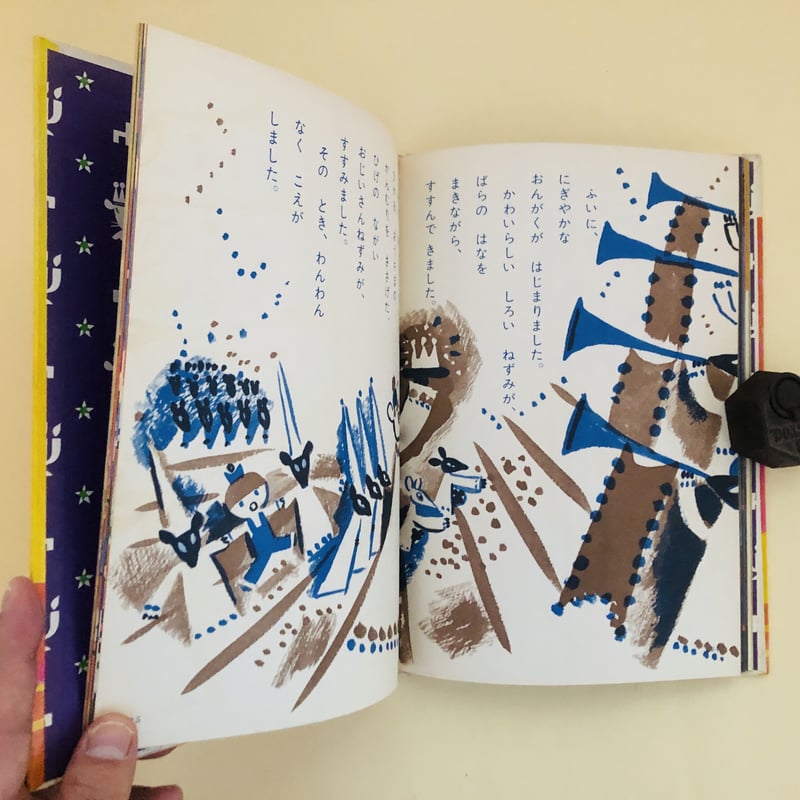 ふいに、
にぎやかな
おんがくが はじまりました。
かわいらしい しろい ねずみが、
ばらの はなを
まきながら、
すすんで きました。
かんむりを ささげた、
ひげの ながい
おじいさんねずみが、
すすみました。
その とき、わんわん
なく こえが
しました。